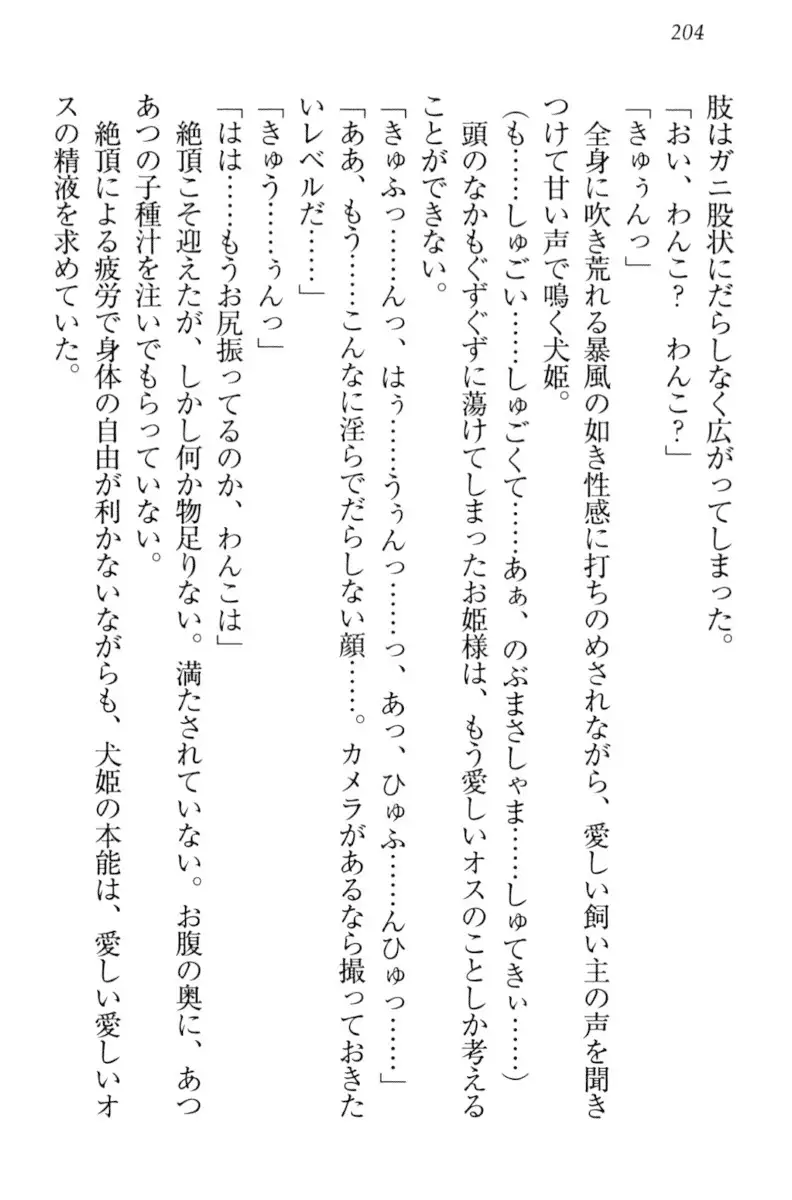 204
肢はガニ股状にだらしなく広がってしまった。
「おい、わんこ？　わんこ？」
「きゅぅんっ」
全身に吹き荒れる暴風の如き性感に打ちのめされながら、愛しい飼い主の声を聞き
つけて甘い声で鳴く犬姫。
（も……しゅごい……しゅごくて……あぁ、のぶまさしゃま……しゅてきぃ……）
頭のなかもぐずぐずに蕩けてしまったお姫様は、もう愛しいオスのことしか考える
ことができない。
「きゅふっ……んっ、はぅ……うぅんっ……っ、あっ、ひゅふ……んひゅっ……」
「ああ、もう……こんなに淫らでだらしない顔……。カメラがあるなら撮っておきた
いレベルだ……」
「きゅう……ぅんっ」
「はは……もうお尻振ってるのか、わんこは」
絶頂こそ迎えたが、しかし何か物足りない。満たされていない。お腹の奥に、あつ
あつの子種汁を注いでもらっていない。
絶頂による疲労で身体の自由が利かないながらも、犬姫の本能は、愛しい愛しいオ
スの精液を求めていた。